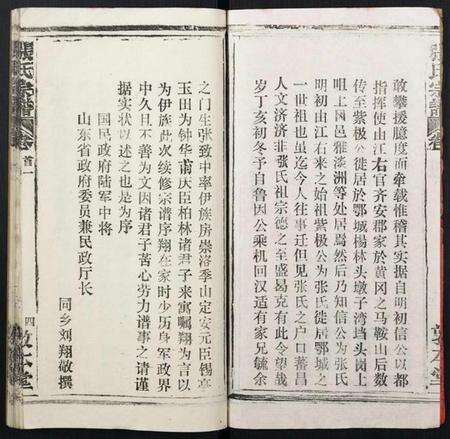 張氏宗譜
敢攀援臆度而牵载惟稽其实据自明初信公以都
指挥使由江右官齐安郡家於黄冈之马鞍山后数
传至紫极公徙居於鄂城杨林头墩子湾垱头岗上
咀上因邑雅淡洲等处焉然后乃知信公为张氏
明初由江右来之始祖紫极公为张氏徙居鄂城之
一世祖也虽迄今人往事迁但见张氏之户口蕃昌
人文济济非张氏祖宗德之至盛曷克有此令望哉
岁丁亥初冬予自鲁因公乘机回汉适有家兄毓余
之门生张致中率伊族房崇洛季山定安元臣锡亭
玉田为钟华甫庆臣柏林诸君子来寓嘱翔为言以
为伊族此次续修宗谱序翔在家时少历身军政界
中久且不善为文因诸君子苦心劳力谱事之请谨
据实状以述之也是为序
国民政府陆军中将
山东省政府委员兼民政厅长
同乡刘翔敬撰
張氏宗譜
卷首一
四